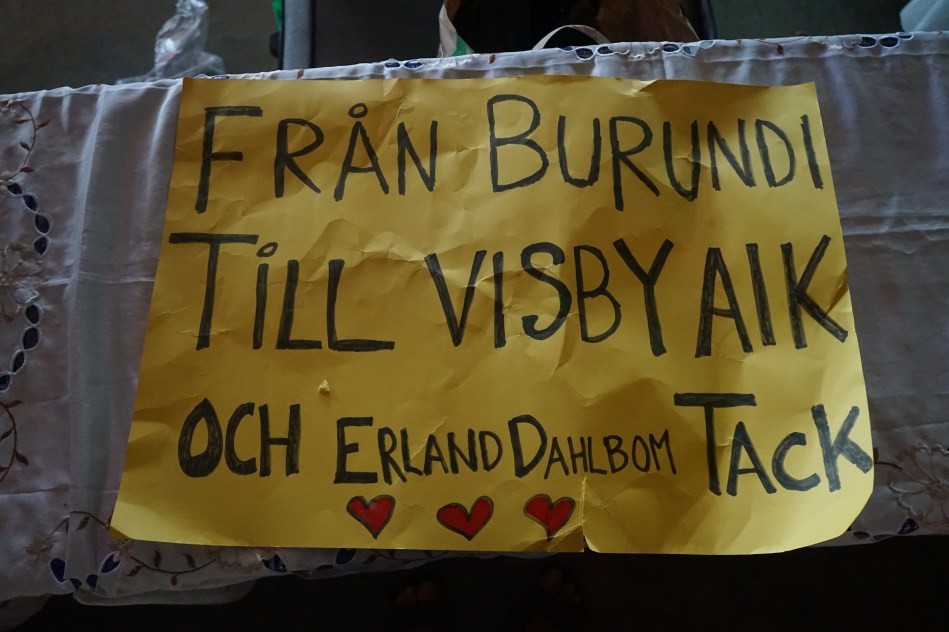 FRÅN BURUNDI
TiLL VISBY AIK
OCH ERLAND DAHLBOM TACK